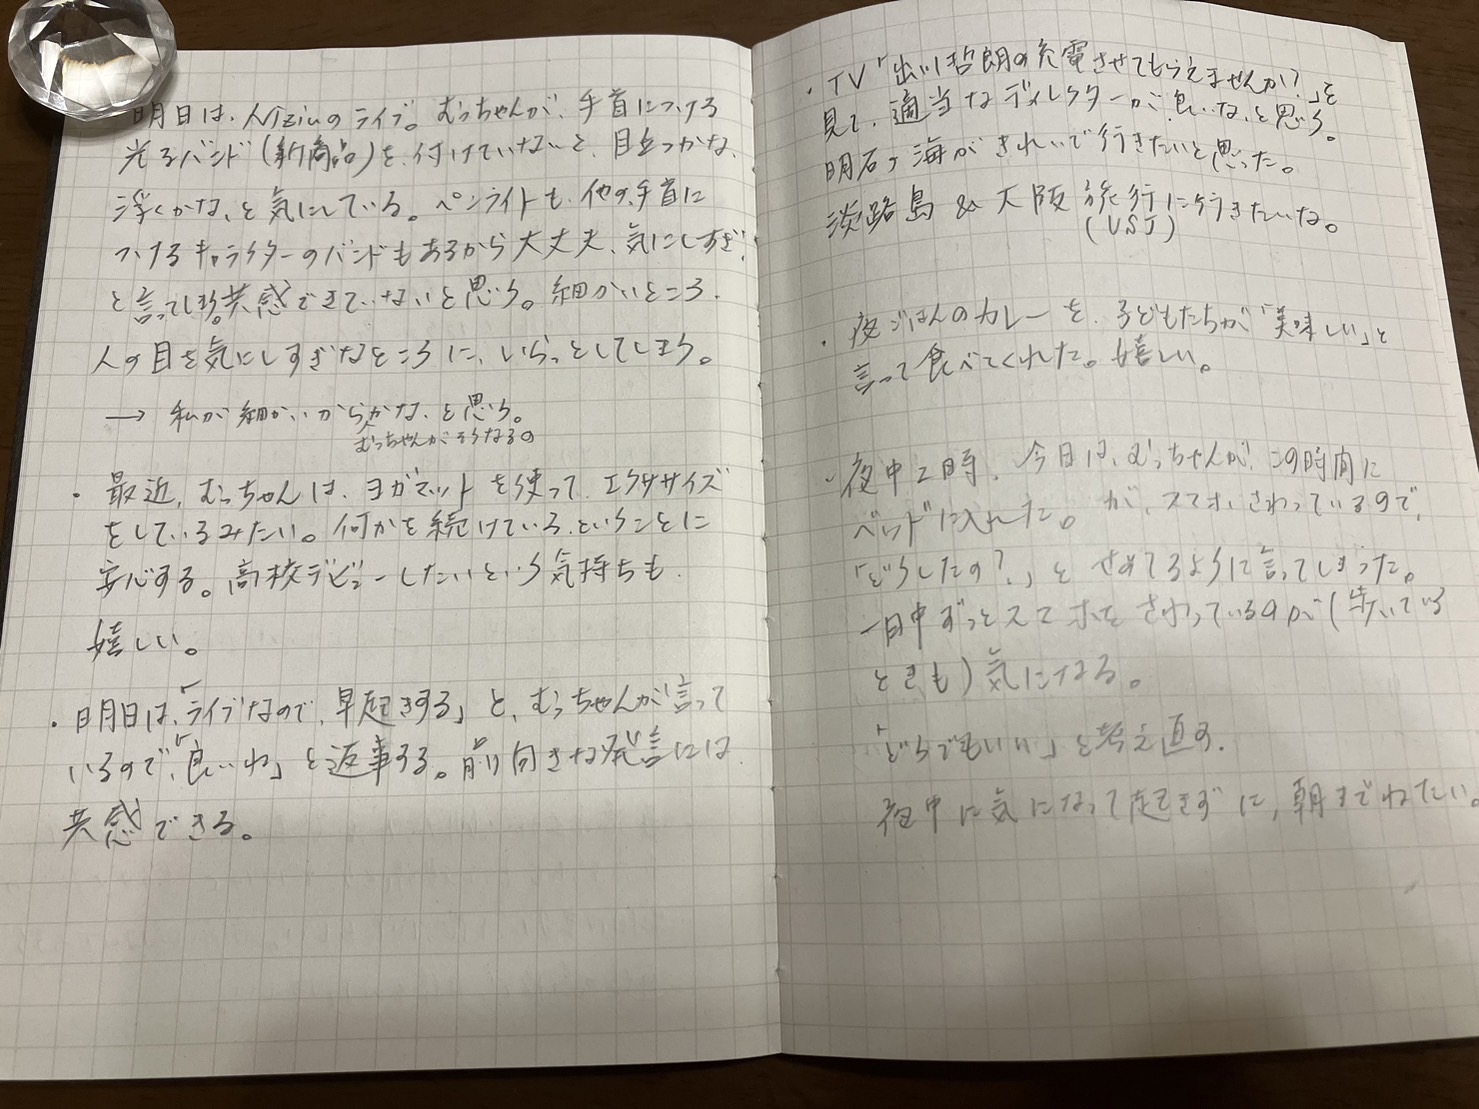 明日は、NiziUのライブ。むっちゃんが、手首につける
光るバンド(新商品)を、付けていないと、目立つかな、
浮くかな、と気にしている。ペンライトも、他の、手首に
つけるキャラクターのバンドもあるから大丈夫、気にしすぎ!
と言ってしまう。共感できていないと思う。細かいところ、
人の目を気にしすぎなところに、いらっとしてしまう。
→ 私が細かいからかな、と思う。
むっちゃんがそうなるの
・最近、むっちゃんは、ヨガマットを使って、エクササイズ
をしているみたい。何かを続けている、ということに
安心する。高校デビューしたいという気持ちも、
嬉しい。
・明日は、「ライブなので、早起きする」と、むっちゃんが言って
いるので、「良いね」と返事する。前向きな発言には
共感できる。
・TV「出川哲朗の充電させてもらえませんか?」を
見て、適当なディレクターが、良いな、と思う。
明石、海がきれいで行きたいと思った。
淡路島 & 大阪旅行に行きたいな。
(USJ)
・夜ごはんのカレーを、子どもたちが「美味しい」と
言って食べてくれた。嬉しい。
・夜中2時、今日は、むっちゃんが、この時間に
ベッドに入れた。が、スマホ、さわっているので、
「どうしたの?」とせめてるように言ってしまった。
一日中ずっとスマホをさわっているのが(歩いている
ときも)気になる。
「どうでもいい」と考え直す。
夜中に気になって起きずに、朝までねたい。